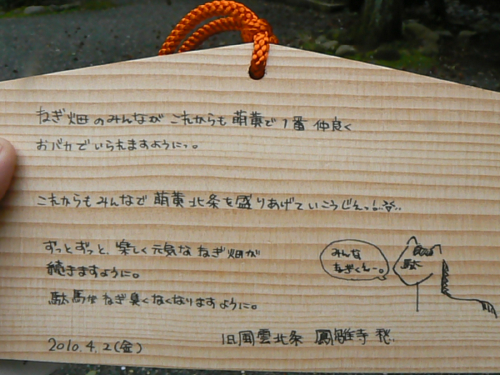 ねぎ畑のみんなが これからも 萌黄で1番 仲良く
おバカでいられますようにっ。
これからもみんなで萌黄北条を盛りあげていこうじぇっ
ずっとずっと、楽しく元気な ねぎ畑が
続きますように。
駄馬がねぎ臭くなくなりますように。
みんな
ねぎくえー。
駄
2010.4.2(金)
旧風雲北条 鳳雛寺